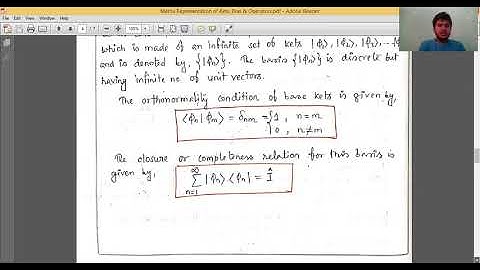 Matrix Representation of Kets, Bras & Operators.pdf - Adobe Reader
which is made of an infinite set of kets |ϕ₁⟩, |ϕ₂⟩, |ϕ₃⟩, ...
and is denoted by, {|ϕn⟩}. The basis {|ϕn⟩} is discrete but
having infinite no. of unit vectors.
The orthonormality condition of base kets is given by,
⟨ϕn|ϕm⟩ = δnm = { 1 , n=m
0 , n≠m
The closure or completeness relation for this basis is
given by, ∞∑n=1 |ϕn⟩⟨ϕn| = 1̂